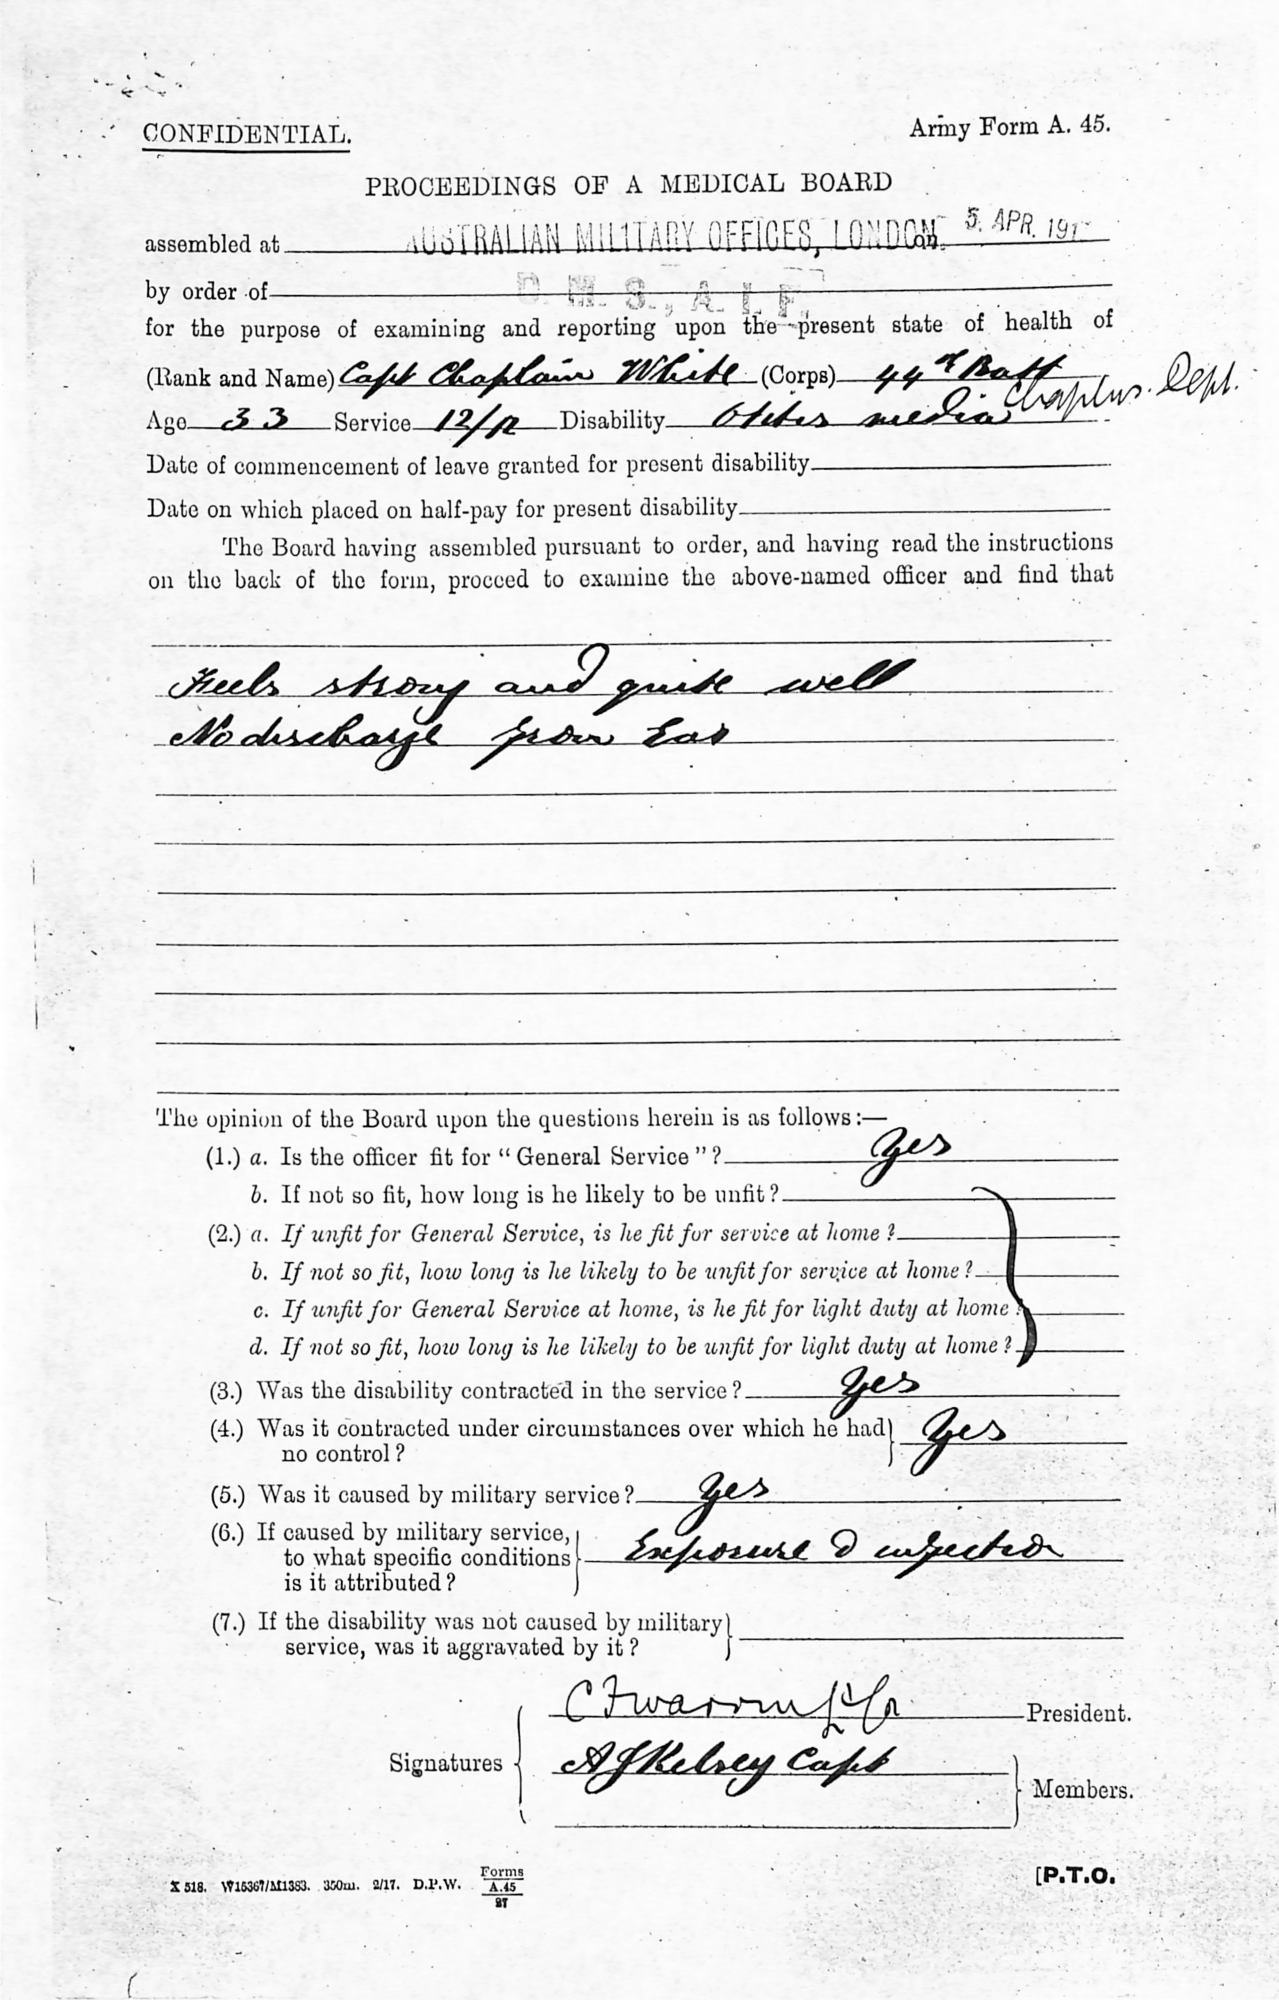 CONFIDENTIAL.
Army Form A. 45.
PROCEEDINGS OF A MEDICAL BOARD
assembled at AUSTRALIAN MILITARY OFFICES, LONDON. on 5. APR. 191
by order of D. M. S., A. I. F.
for the purpose of examining and reporting upon the present state of health of
(Rank and Name) Capt Chaplain White (Corps) 44th Batt
Chaplns. Dept.
Age 33 Service 12/12 Disability Otitis media
Date of commencement of leave granted for present disability
Date on which placed on half-pay for present disability
The Board having assembled pursuant to order, and having read the instructions
on the back of the form, proceed to examine the above-named officer and find that
Feels strong and quite well
No discharge from Ear
The opinion of the Board upon the questions herein is as follows:—
(1.) a. Is the officer fit for "General Service"? Yes
b. If not so fit, how long is he likely to be unfit?
(2.) a. If unfit for General Service, is he fit for service at home?
b. If not so fit, how long is he likely to be unfit for service at home?
c. If unfit for General Service at home, is he fit for light duty at home?
d. If not so fit, how long is he likely to be unfit for light duty at home?
(3.) Was the disability contracted in the service? Yes
(4.) Was it contracted under circumstances over which he had
no control? Yes
(5.) Was it caused by military service? Yes
(6.) If caused by military service,
to what specific conditions Exposure & infection
is it attributed?
(7.) If the disability was not caused by military
service, was it aggravated by it?
President.
Signatures A J Kelsey Capt
Members.
X 518. W15367/M1383. 350m. 2/17. D.P.W. Forms
A.45
27
[P.T.O.